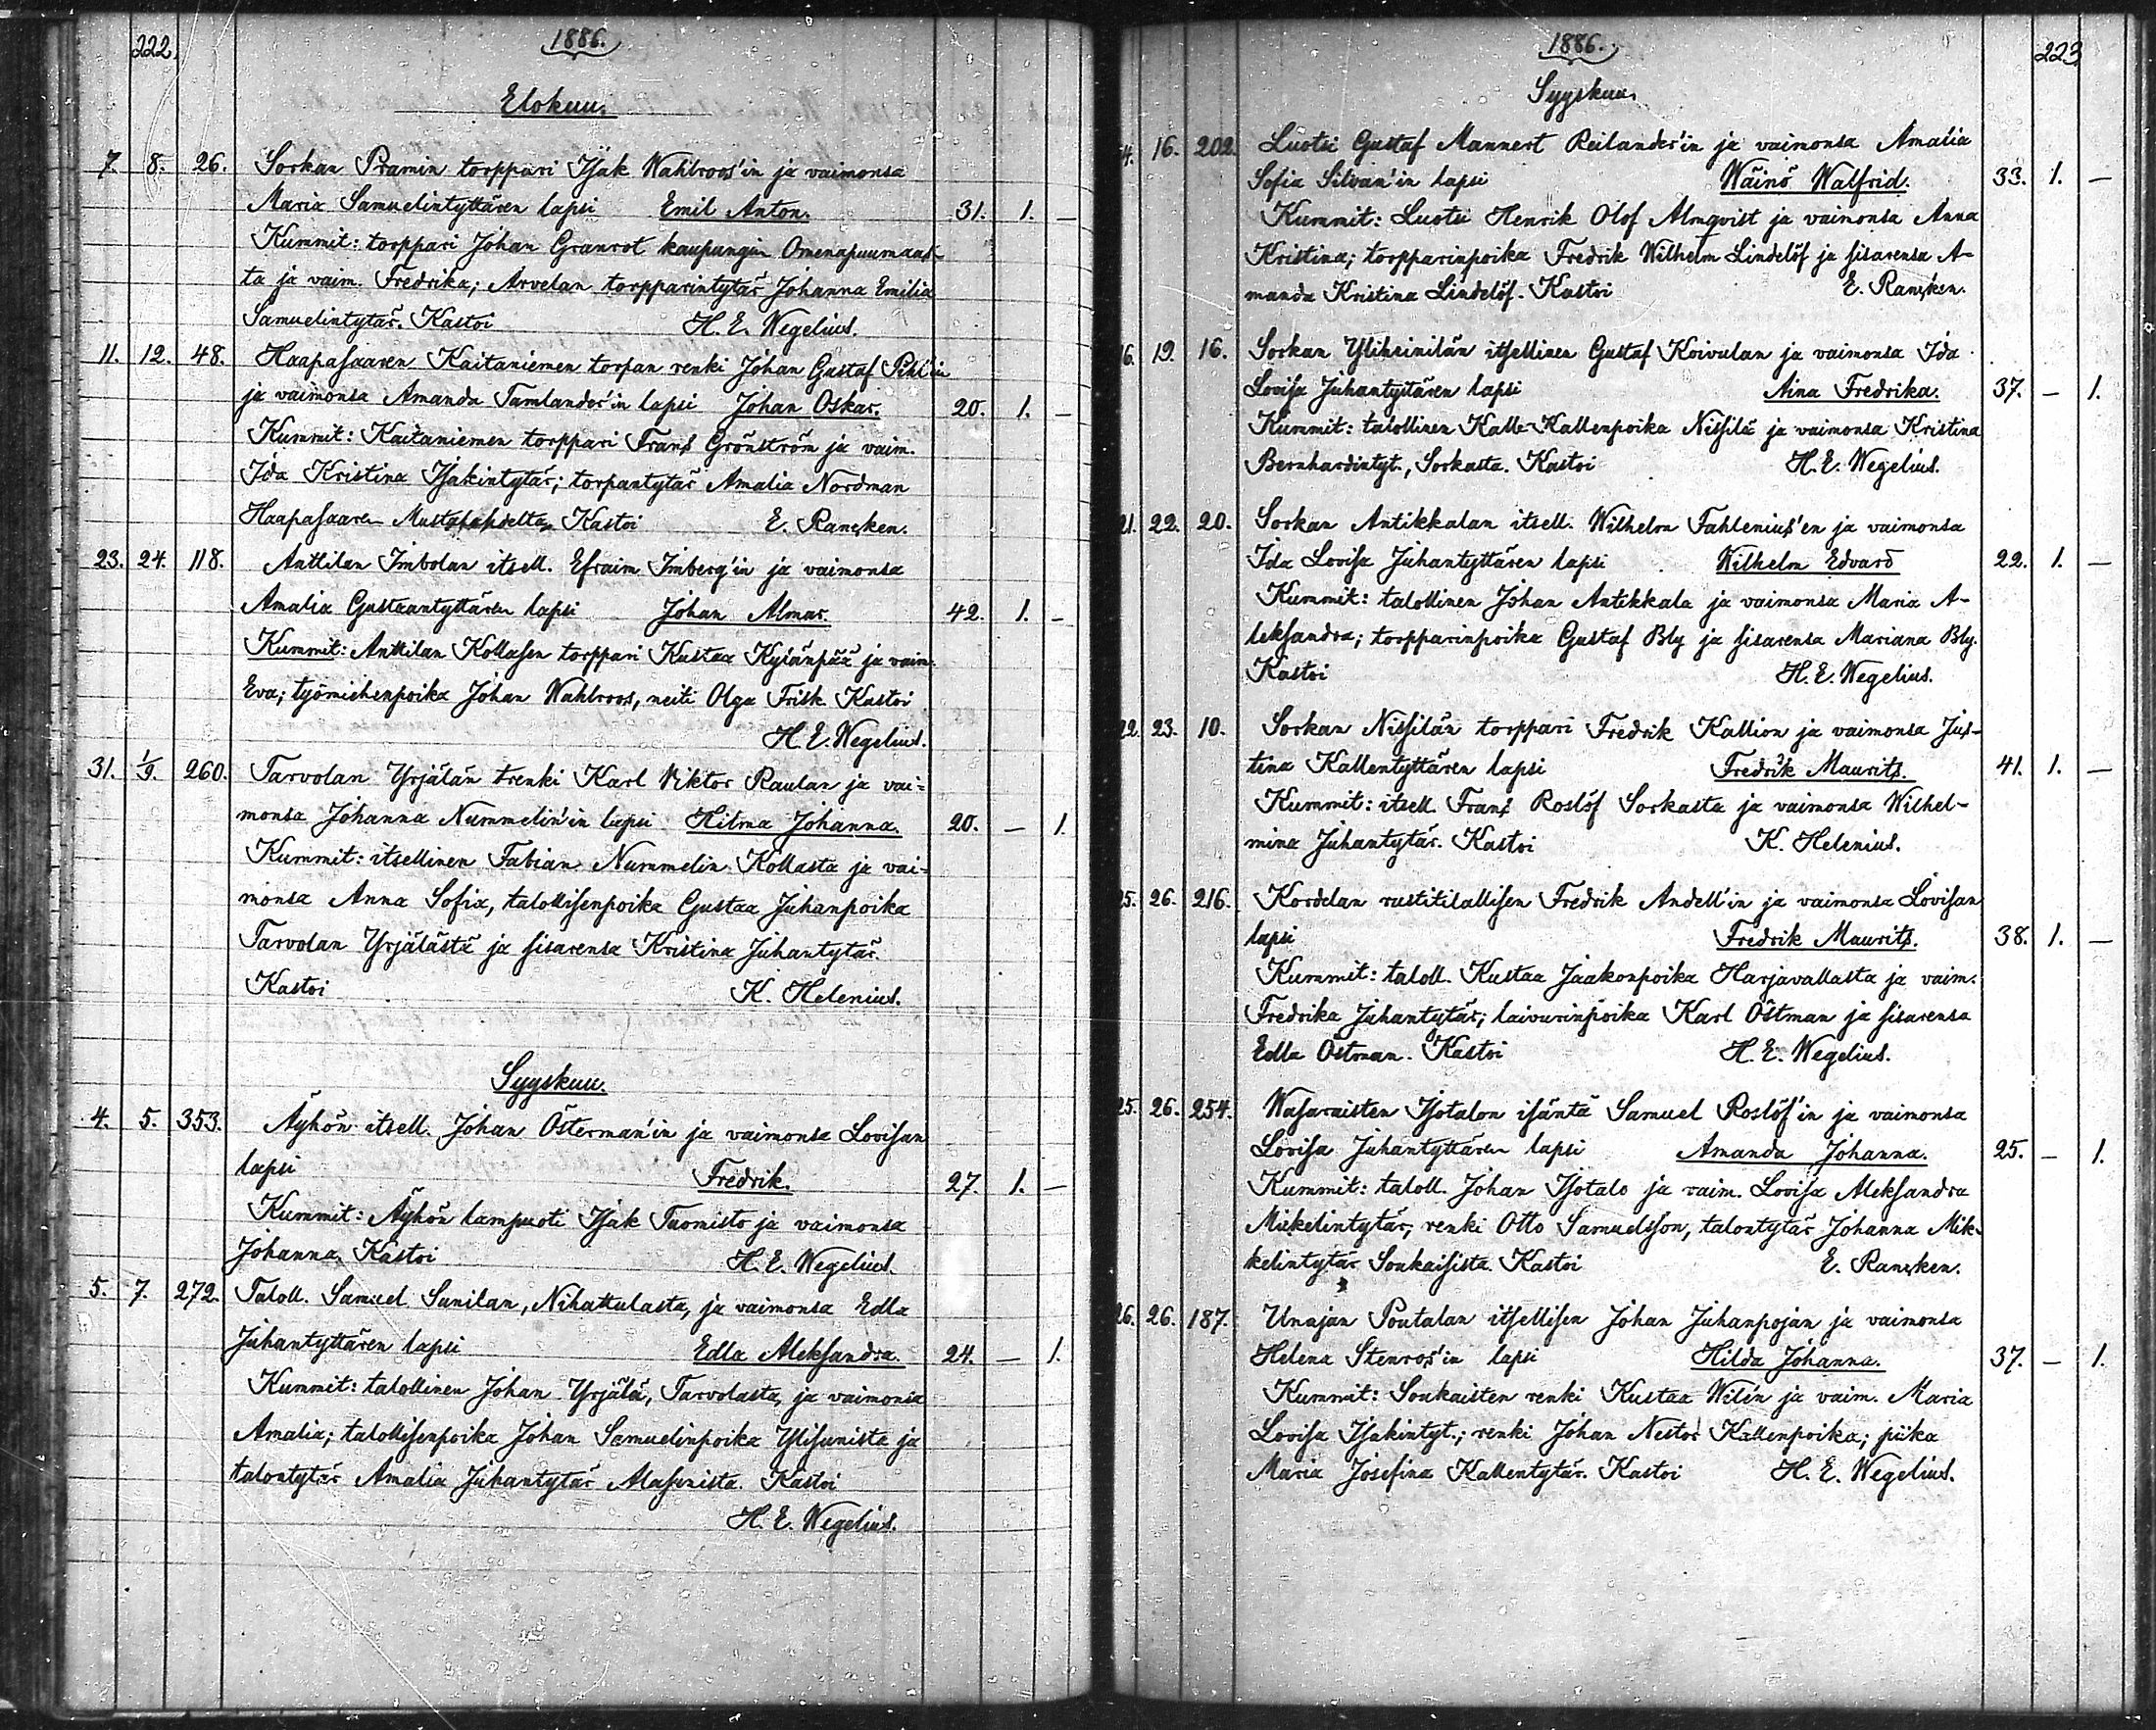 222.
1886.
Elokuu.
7. 8. 26. Sorkan Pramin torppari Isak Wahlroos'in ja vaimonsa
Maria Samuelintyttären lapsi Emil Anton. 31. 1. —
Kummit: torppari Johan Granrot kaupungin Omenapuumaas-
ta ja vaim. Fredrika; Arvelan torpparintytär Johanna Emilia
Samuelintytär. Kastoi H. E. Wegelius.
11. 12. 48. Haapasaaren Kaitaniemen torpan renki Johan Gustaf Pihl'in
ja vaimonsa Amanda Tamlander'in lapsi Johan Oskar. 20. 1. —
Kummit: Kaitaniemen torppari Frans Grönström ja vaim.
Ida Kristina Isakintytär; torpantytär Amalia Nordman
Haapasaaren Mustalahdelta. Kastoi E. Rancken.
23. 24. 118. Anttilan Imbolan itsell. Efraim Imberg'in ja vaimonsa
Amalia Gustaantyttären lapsi Johan Almar. 42. 1. —
Kummit: Anttilan Kollasen torppari Kustaa Kylänpää ja vaim.
Eva; työmiehenpoika Johan Wahlroos, neiti Olga Frisk. Kastoi
H. E. Wegelius.
31. 1/9. 260. Tarvolan Yrjälän trenki Karl Viktor Raulan ja vai-
monsa Johanna Nummelin'in lapsi Hilma Johanna. 20. — 1.
Kummit: itsellinen Fabian Nummelin Kollasta ja vai-
monsa Anna Sofia, talollisenpoika Gustaa Juhanpoika
Tarvolan Yrjälästä ja sisarensa Kristina Juhantytär.
Kastoi K. Helenius.
Syyskuu.
4. 5. 353. Äyhön itsell. Johan Österman'in ja vaimonsa Lovisan
lapsi Fredrik. 27. 1. —
Kummit: Äyhön lampuoti Isak Tuomisto ja vaimonsa
Johanna. Kastoi H. E. Wegelius.
5. 7. 272. Taloll. Samuel Sunilan, Nihattulasta, ja vaimonsa Edla
Juhantyttären lapsi Edla Aleksandra. 24. — 1.
Kummit: talollinen Johan Yrjälä, Tarvolasta, ja vaimonsa
Amalia; talollisenpoika Johan Samuelinpoika Ylisunista ja
talontytär Amalia Juhantytär Alasunista. Kastoi
H. E. Wegelius.
1886.
223
Syyskuu.
14. 16. 202. Luotsi Gustaf Mannert Reilander'in ja vaimonsa Amalia
Sofia Silvan'in lapsi Wäinö Walfrid. 33. 1. —
Kummit: Luotsi Henrik Olof Almqvist ja vaimonsa Anna
Kristina; torpparinpoika Fredrik Wilhelm Lindelöf ja sisarensa A-
manda Kristina Lindelöf. Kastoi E. Rancken.
16. 19. 16. Sorkan Yliheinilän itsellinen Gustaf Koivulan ja vaimonsa Ida
Lovisa Juhantyttären lapsi Aina Fredrika. 37. — 1.
Kummit: talollinen Kalle Kallenpoika Nissilä ja vaimonsa Kristina
Bernhardintyt., Sorkasta. Kastoi H. E. Wegelius.
21. 22. 20. Sorkan Antikkalan itsell. Wilhelm Fahlenius'en ja vaimonsa
Ida Lovisa Juhantyttären lapsi Wilhelm Edvard 22. 1. —
Kummit: talollinen Johan Antikkala ja vaimonsa Maria A-
leksandra; torpparinpoika Gustaf Bly ja sisarensa Mariana Bly.
Kastoi H. E. Wegelius.
22. 23. 10. Sorkan Nissilän torppari Fredrik Kallion ja vaimonsa Jus-
tina Kallentyttären lapsi Fredrik Maurits. 41. 1. —
Kummit: itsell. Frans Roslöf Sorkasta ja vaimonsa Wilhel-
mina Juhantytär. Kastoi K. Helenius.
25. 26. 216. Kordelan rustitilallisen Fredrik Andell'in ja vaimonsa Lovisan
lapsi Fredrik Maurits. 38. 1. —
Kummit: taloll. Kustaa Jaakonpoika Harjavallasta ja vaim.
Fredrika Juhantytär; laivurinpoika Karl Östman ja sisarensa
Edla Östman. Kastoi H. E. Wegelius.
25. 26. 254. Wasaraisten Isotalon isäntä Samuel Roslöf'in ja vaimonsa
Lovisa Juhantyttären lapsi Amanda Johanna. 25. — 1.
Kummit: taloll. Johan Isotalo ja vaim. Lovisa Aleksandra
Mikkelintytär, renki Otto Samuelsson, talontytär Johanna Mik-
kelintytär Soukaisista. Kastoi E. Rancken.
26. 26. 187. Unajan Poutalan itsellisen Johan Juhanpojan ja vaimonsa
Helena Stenros'in lapsi Hilda Johanna. 37. — 1.
Kummit: Soukaisten renki Kustaa Wilén ja vaim. Maria
Lovisa Isakintyt.; renki Johan Nestor Kallenpoika; piika
Maria Josefina Kallentytär. Kastoi H. E. Wegelius.